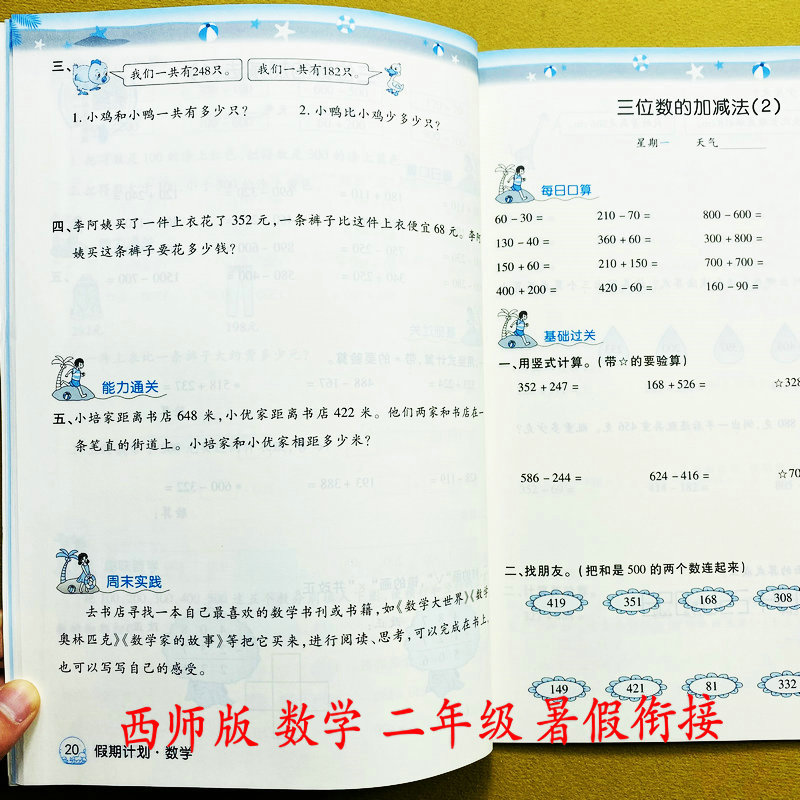 三、 我们一共有248只。 我们一共有182只。
1. 小鸡和小鸭一共有多少只? 2. 小鸭比小鸡少多少只?
四、李阿姨买了一件上衣花了 352 元,一条裤子比这件上衣便宜 68 元。李阿
姨买这条裤子要花多少钱?
能力通关
五、小培家距离书店 648 米,小优家距离书店 422 米。他们两家和书店在一
条笔直的街道上。小培家和小优家相距多少米?
周末实践
去书店寻找一本自己最喜欢的数学书刊或书籍,如《数学大世界》《数学
奥林匹克》《数学家的故事》等把它买来,进行阅读、思考,可以完成在书上,
也可以写写自己的感受。
20 假期计划·数学
三位数的加减法(2)
星期一 天气
每日口算
60-30= 210-70= 800-600=
130-40= 360+60= 300+800=
150+60= 210+150= 700+700=
400+200= 420-60= 160-90=
基础过关
一、用竖式计算。(带☆的要验算)
352+247= 168+526= ☆328
586-244= 624-416= ☆70
二、找朋友。(把和是 500 的两个数连起来)
419 351 168 308
149 421 81 332
西师版 数学 二年级 暑假衔接